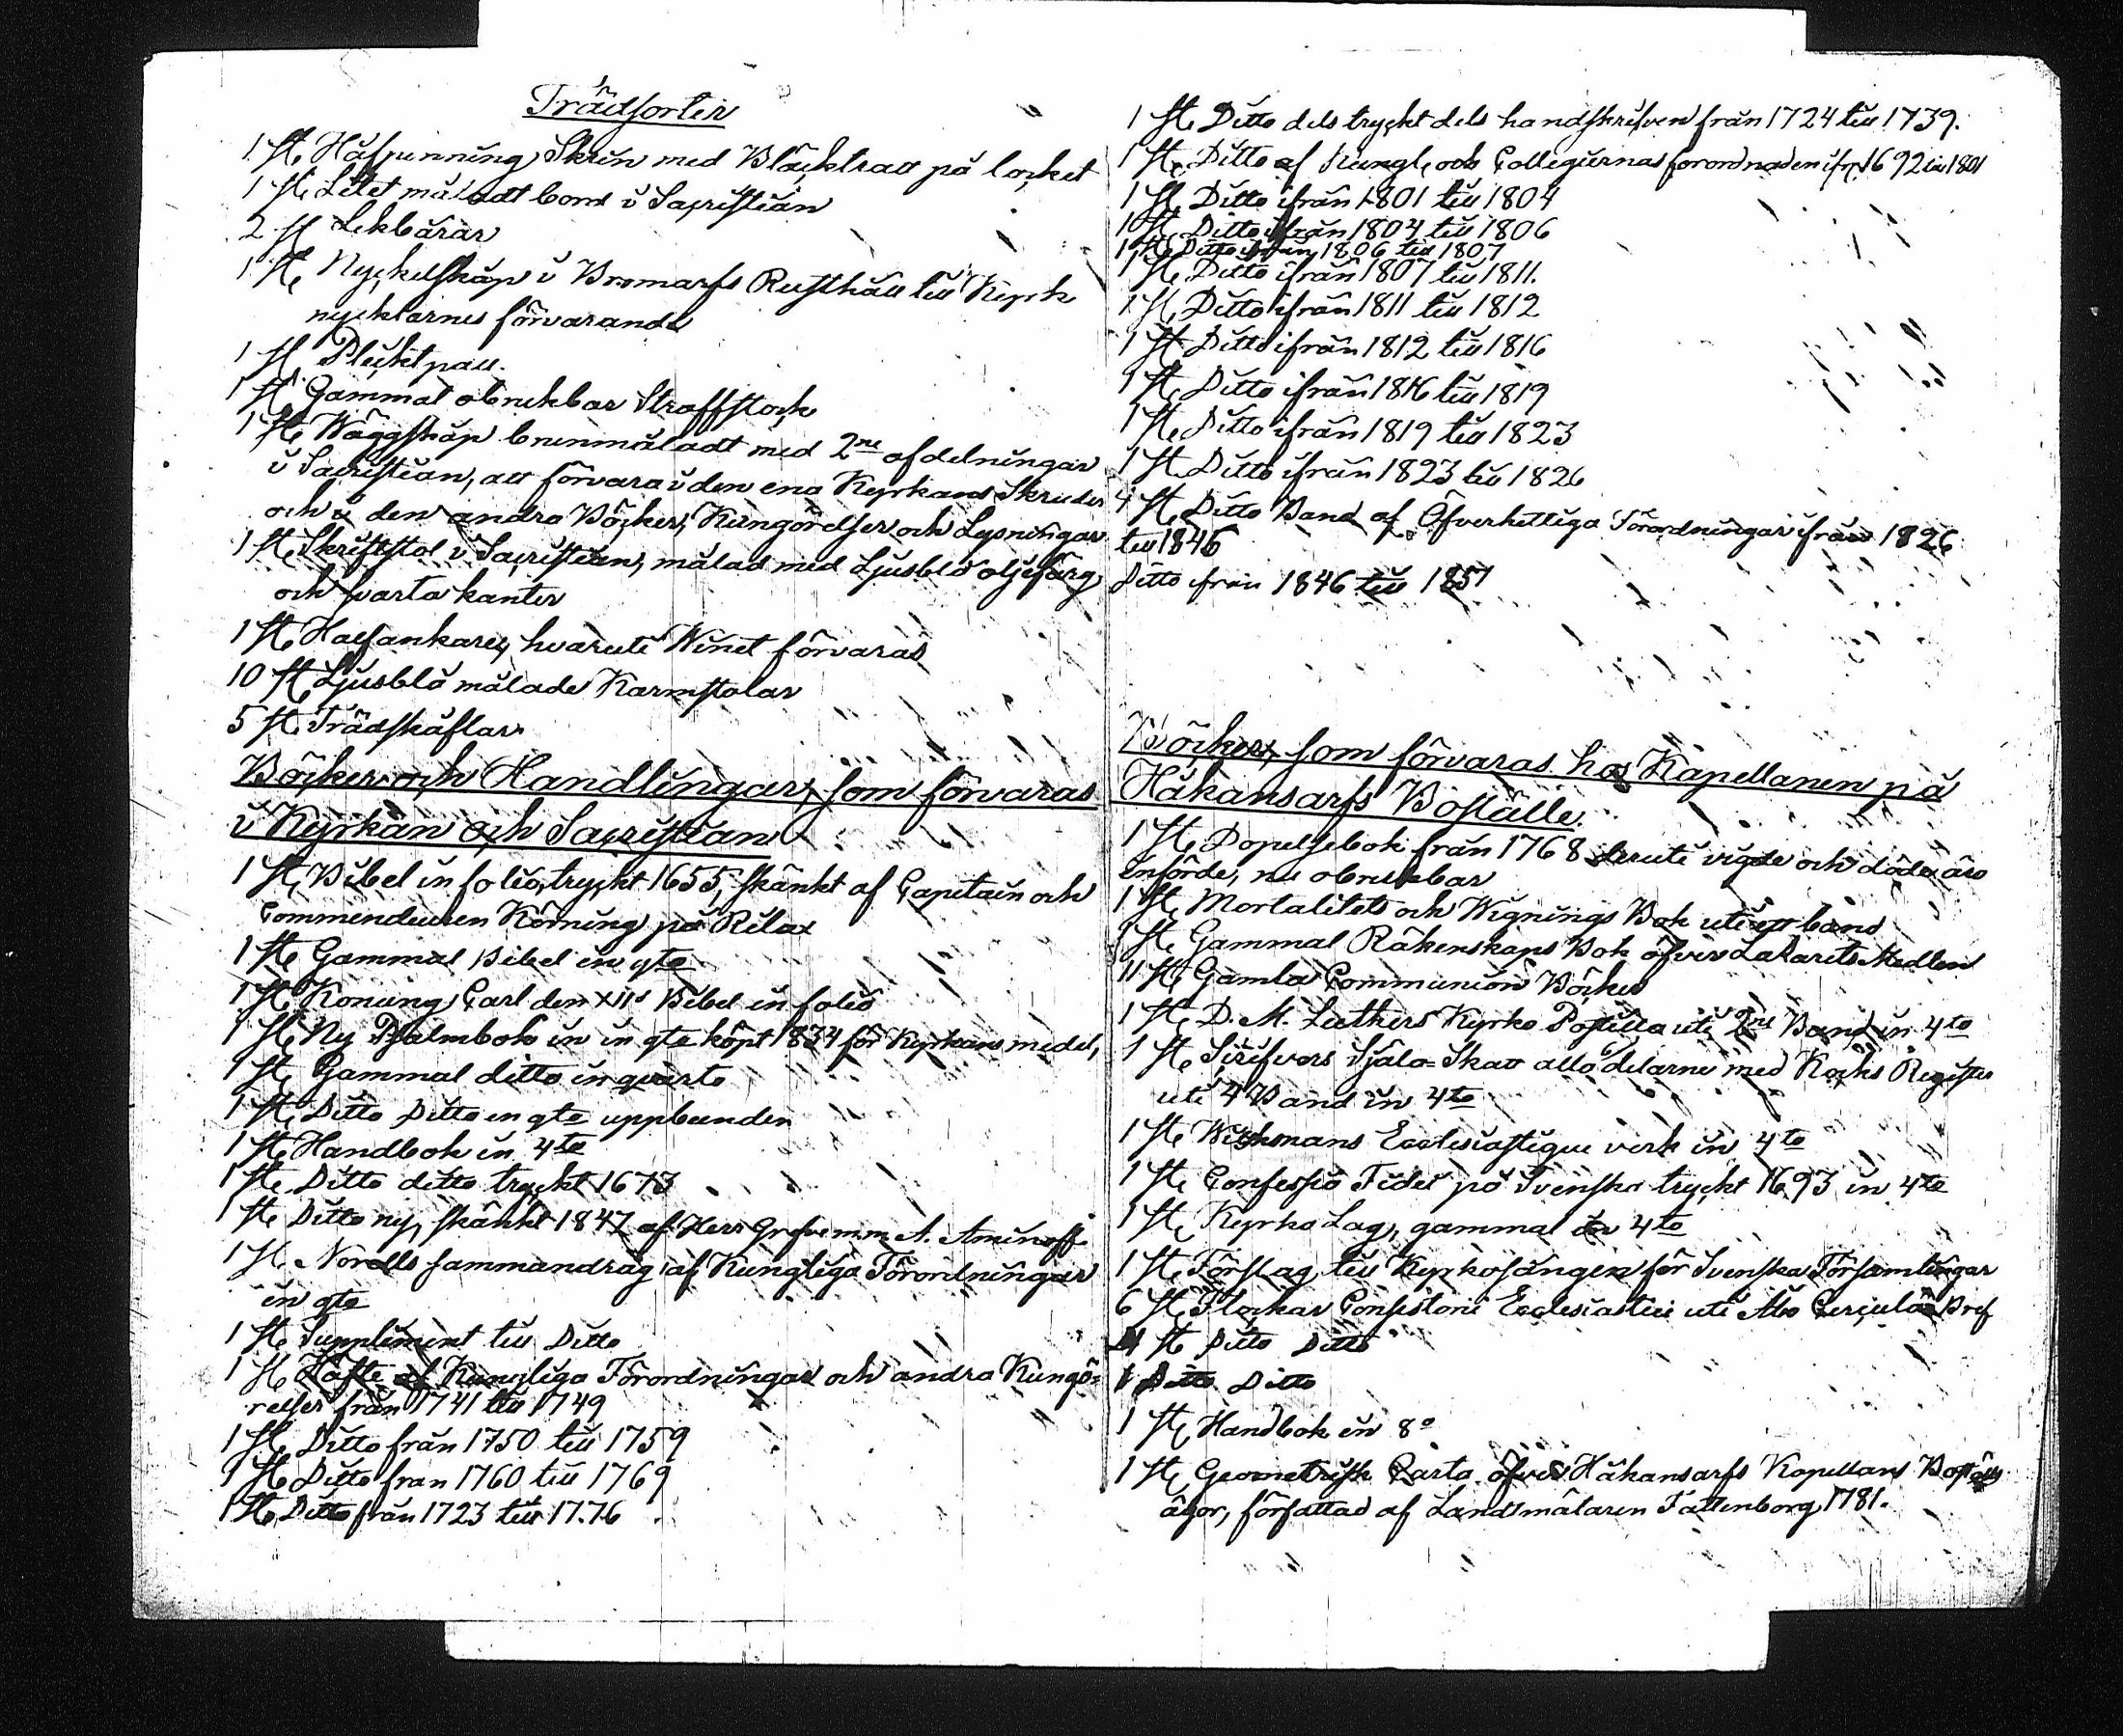 Trädsorter
1 St. Håfpenning Skrin med Bläcktratt på locket
1 St. Litet måladt bord i Sacristian
2 St. Likbårar
1 St. Nyckelskåp i Bromarfs Rusthåll till Kyrck
nycklarnes förvarande
1 St. Pliktpall.
1 St. Gammal obrukbar Straffstock
1 St. Wäggskåp brunmåladt med 2ne afdelningar
i Sacristian, att förvara i den ena Kyrkans Skruder
och i den andra Böcker, Kungörelser och Lysningar
1 St. Skriftstol i Sacristian, målad med Ljusblå oljefärg
och svarta kanter
1 St. Halfankare, hvaruti Winet förvaras
10 St. Ljusblå målade Karmstolar
5 St. Trädskåflar
Böcker och Handlingar, som förvaras
i Kyrkan och Sacristian
1 St. Bibel in folio, tryckt 1655, skänkt af Capitain och
Commendeuren Körning på Rilax
1 St. Gammal Bibel in qto
1 St. Konung Carl den XIIs Bibel in folio
1 St. Ny Psalmbok in in qto köpt 1834 för Kyrkans medel,
1 St. Gammal ditto in quarto
1 St. Ditto Ditto in qto uppbunden
1 St. Handbok in 4to
1 St. Ditto ditto tryckt 1673
1 St. Ditto ny, skänkt 1847 af Herr Grefve m.m. A. Aminoff
1 St. Norells sammandrag af Kungliga Förordningar
in qto
1 St. Suppliment till Ditto
1 St. Häfte af Kungliga Förordningar och andra Kungö-
relser från 1741 till 1749
1 St. Ditto från 1750 till 1759
1 St. Ditto från 1760 till 1769
1 St. Ditto från 1723 till 1776
1 St. Ditto dels tryckt dels handskrifven från 1724 till 1739.
1 St. Ditto af Kungl. och Collegiernas forordnaden ifr. 1692 till 1801
1 St. Ditto ifrån 1801 till 1804
1 St. Ditto ifrån 1804 till 1806
1 St. Ditto ifrån 1806 till 1807
1 St. Ditto ifrån 1807 till 1811.
1 St. Ditto ifrån 1811 till 1812
1 St. Ditto ifrån 1812 till 1816
1 St. Ditto ifrån 1816 till 1819
1 St. Ditto ifrån 1819 till 1823
1 St. Ditto ifrån 1823 till 1826
4 St. Ditto Band af Öfverhettliga Förordningar ifrån 1826
till 1846
Ditto från 1846 till 1857
Böcker, som förvaras hos Kapellanen på
Håkansarfs Boställe.
1 St. Dopelsebok från 1768 deruti vigde och döde äro
införde, nu obrukbar
1 St. Mortalitets och Wignings Bok uti ett band
1 St. Gammal Räkenskaps Bok öfver Lazarets Medlen
11 St. Gamla Communion Böcker
1 St. D. M. Luthers Kyrko Postilla uti 2ne Band in 4to
1 St. Scrifvers Själa-Skatt alla delarne med Kochs Register
uti 4 Band in 4to
1 St. Wilskmans Ecclesiastique verk in 4to
1 St. Confessio Fidei på Svenska tryckt 1693 in 4to
1 St. Kyrko Lag, gammal in 4to
1 St. Förslag till Kyrkosången för Svenska Församlingar
6 St. Flockar Consistorii Ecclesiastici uti Åbo Circulär Bref
St. Ditto Ditto
1 Ditto Ditto
1 St. Handbok in 8o
1 St. Geometrisk Carta öfver Håkansarfs Kapellans Boställs
ägor, författad af Landtmätaren Fattenborg 1781.